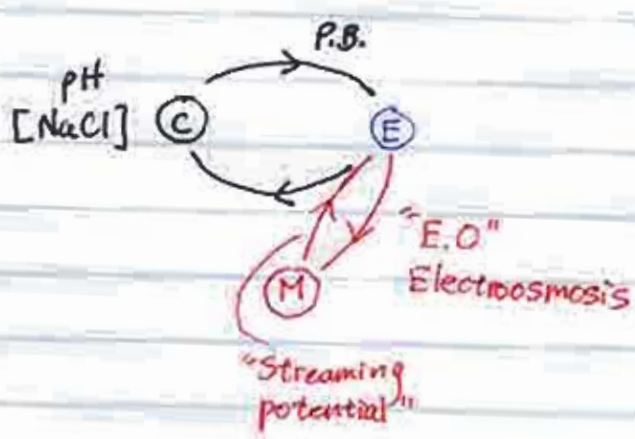 P.B.
pH
[NaCl] C
E
"E.O"
Electroosmosis
M
"Streaming
potential"